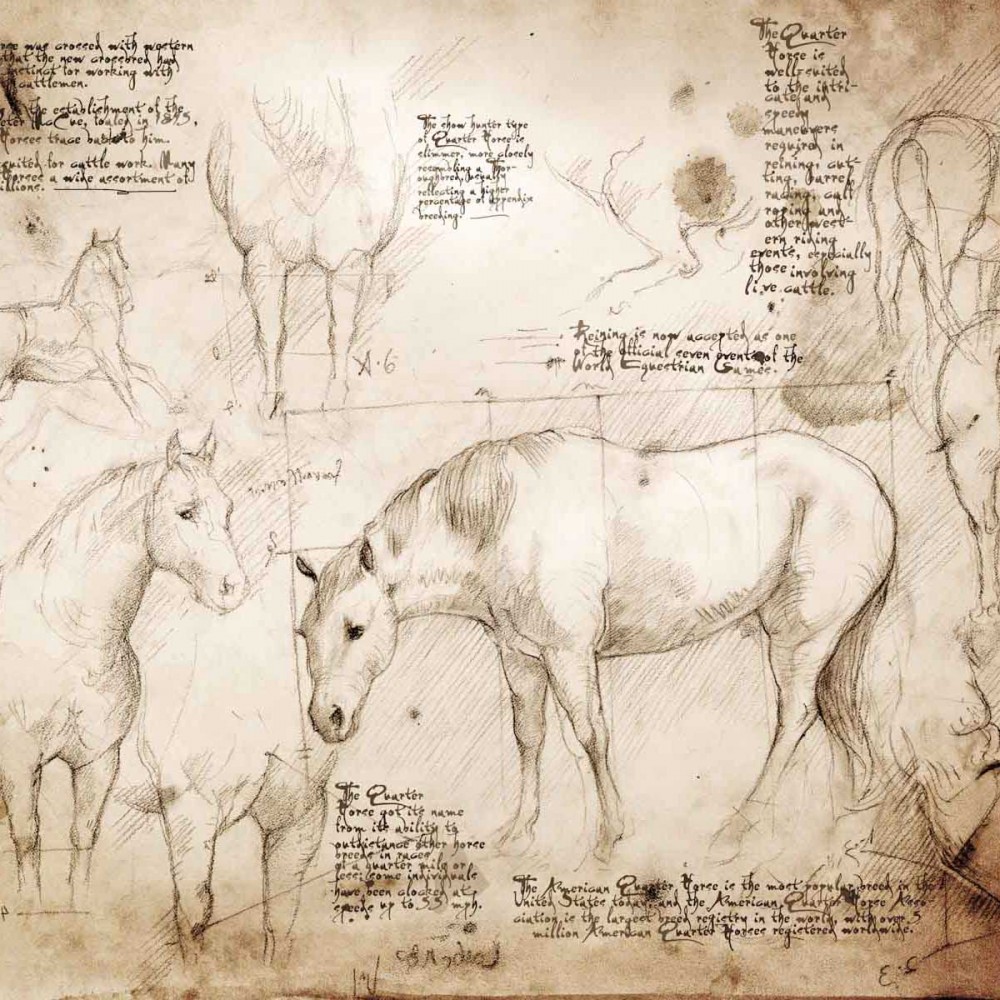 was crossed with western
that the new crossbred had
instinct for working with
cattlemen.
the establishment of the
Cue, foaled in 1895,
Horses trace back to him.
suited for cattle work. Many
Horses a wide assortment of
The show hunter type
of Quarter Horse is
slimmer, more closely
resembling a Thor-
oughbred, usually
reflecting a higher
percentage of appendix
breeding.
The Quarter
Horse is
well-suited
to the intri-
cate and
speedy
maneuvers
required in
reining, cut-
ting, barrel
racing, calf
roping and
other west-
ern riding
events, especially
those involving
live cattle.
Reining is now accepted as one
of the official seven events of the
World Equestrian Games.
A·6
The Quarter
Horse got its name
from its ability to
outdistance other horse
breeds in races
of a quarter mile or
less; some individuals
have been clocked at
speeds up to 55 mph.
The American Quarter Horse is the most popular breed in the
United States today, and the American Quarter Horse Asso
ciation is the largest breed registry in the world, with over 5
million American Quarter Horses registered worldwide.